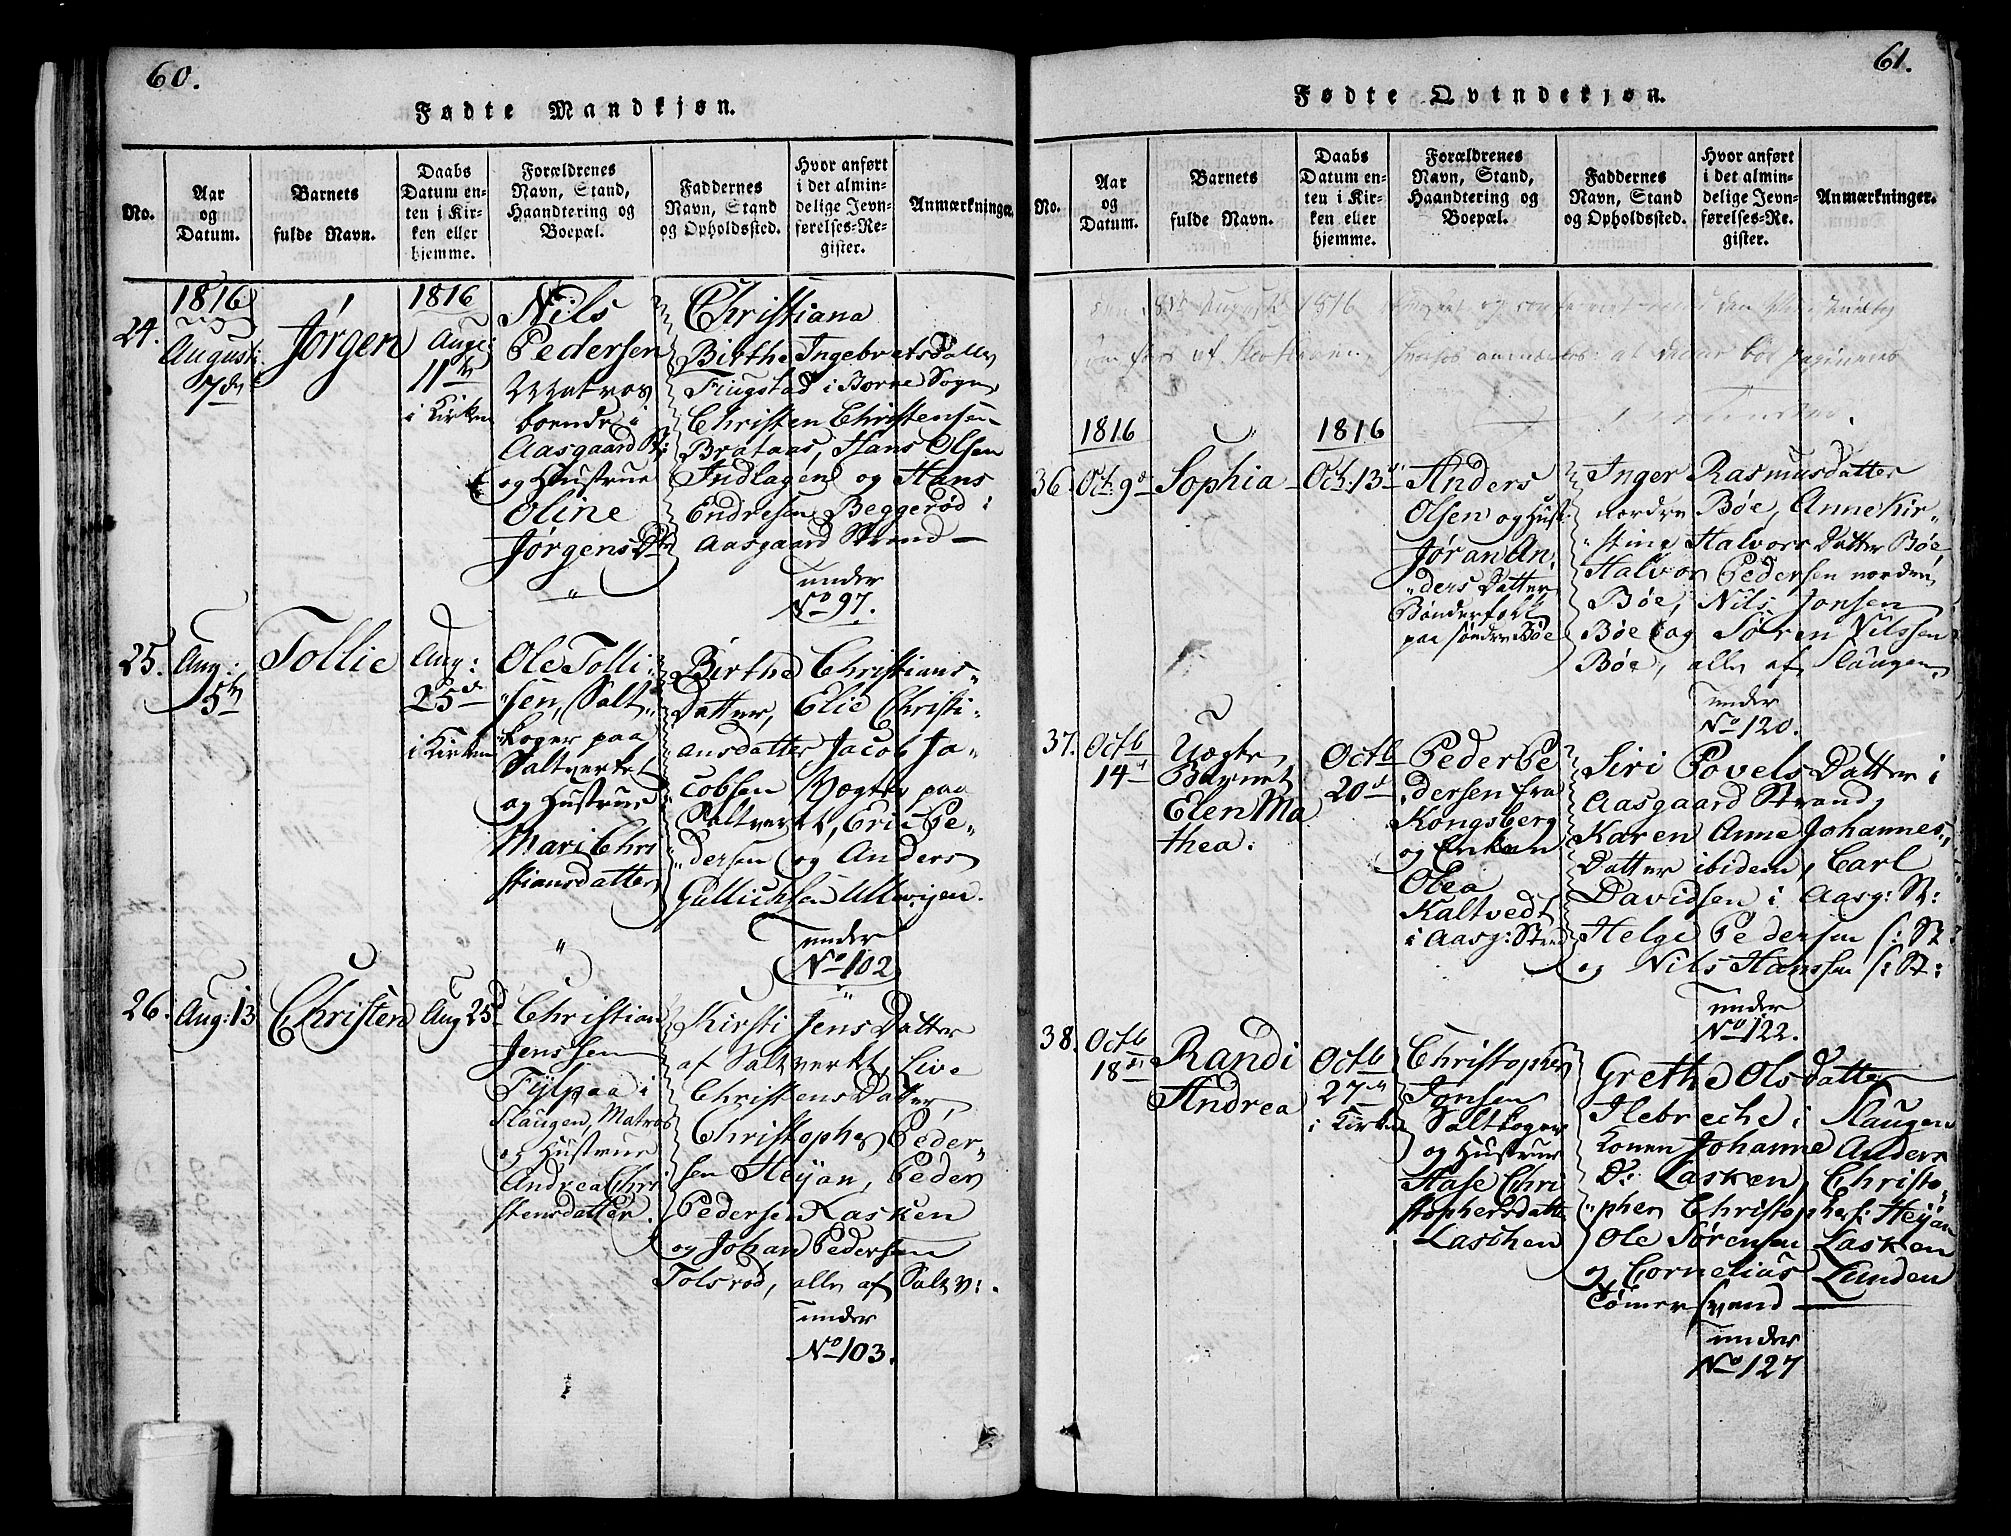 60.
Fødte Mandkjøn.
No.
Aar
og
Datum.
Barnets
fulde Navn.
Daabs
Datum en-
ten i Kir-
ken eller
hjemme.
Forældrenes
Navn, Stand,
Haandtering og
Boepæl.
Faddernes
Navn, Stand
og Opholdssted.
Hvor anført
i det almin-
delige Jevn-
førelses-Re-
gister.
Anmærkninger.
24.
1816
August
7de
Jørgen
1816
Aug:
11te
i Kirken
Nils
Pedersen
Matros
boende i
Aasgaard St:
og Hustrue
Eline
Jørgens Dtr
Christiana
Birthe Ingebrets Datter
Fiugstad i Borre Sogn,
Christen Christensen
Brataas, Hans Olsen
Indlagen og Hans
Endresen Beggerød i
Aasgaard Strand —
under
No 97.
25.
Aug:
5te
Tollie
Aug:
25de
i Kirken
Ole Tolli-
sen, Salt-
koger paa
Saltverket
og Hustrue
Mari Chri
stiansdatter
Birthe Christians-
Datter, Elie Christi-
ansdatter Jacob Ja-
cobsen Vægter paa
Saltverket, Eric Pe-
dersen og Anders
Gullichsen Ullvigen.
under
No 102
26.
Aug: 13
Christen
Aug 25d
Christian
Jenssen
Fylpaa i
Slaugen, Matros
og Hustrue
Andrea Chri
stensdatter.
Kirsti Jens Datter
af Saltverket, Live
Christens Datter,
Christopher Peder-
sen Heyan, Peder
Pedersen Lasken
og Johan Pedersen
Tolsrød, alle af Saltv:
under
No 103.
61.
Fødte Qvindekjøn.
No.
Aar
og
Datum.
Barnets
fulde Navn.
Daabs
Datum en-
ten i Kir-
ken eller
hjemme.
Forældrenes
Navn, Stand,
Haandtering og
Boepæl.
Faddernes
Navn, Stand
og Opholdssted.
Hvor anført
i det almin-
delige Jevn-
førelses-Re-
gister.
Anmærkninger.
August 1816
36.
1816
Oct: 9d
Sophia
1816
Oct: 13d
Anders
Olsen og Hust:
Jøran An-
ders Datter
Bønderfolk
paa søndre Bøe
Inger Rasmusdatter
nordre Bøe, Anne Kir-
stine Halvors Datter Bøe
Halvor Pedersen nordre
Bøe, Nils Jonsen
Bøe og Søren Nilssen
Bøe, alle af Slaugen,
under
No 120.
37.
Octb
14d
Uægte
Barnet
Elen Ma
thea.
Octb
20d
Peder Pe
dersen fra
Kongsberg
og Enken
Olea
Kaltvedt
i Aasg: Strand
Siri Povels Datter i
Aasgaard Strand,
Karen Anne Johannes
Datter ibidem, Carl
Davidsen i Aasg: St:
Helge Pedersen
og Nils Hanssen
under
No 122.
38.
Octb
18d
Randi
Andrea
Octb
27d
i Kirken
Christopher
Jonsen
Saltkoger
og Hustrue
Aase Chri
stophersdatter
Laschen
Grethe Ols Datter
Ilebreche i Slaugen
Konen Johanne Anders
D: Lasken, Christo-
pher Christophers: Heyan
Ole Sørensen Lasken
og Cornelius Lunden
Tømmermand —
under
No 127